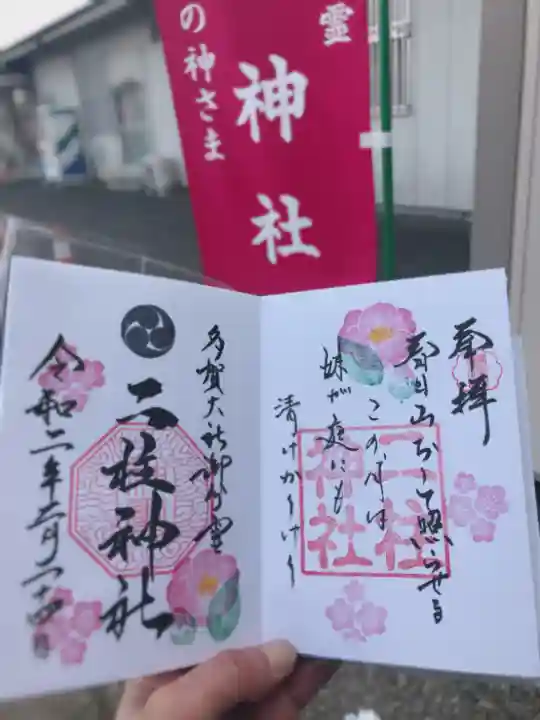 霊
神社
の神さま
奉拝
春日山おして照らせる
この月は
妹が庭にも
清けかりけり
二柱
神社
多賀大社御分霊
二柱神社
令和二年三月二十四日